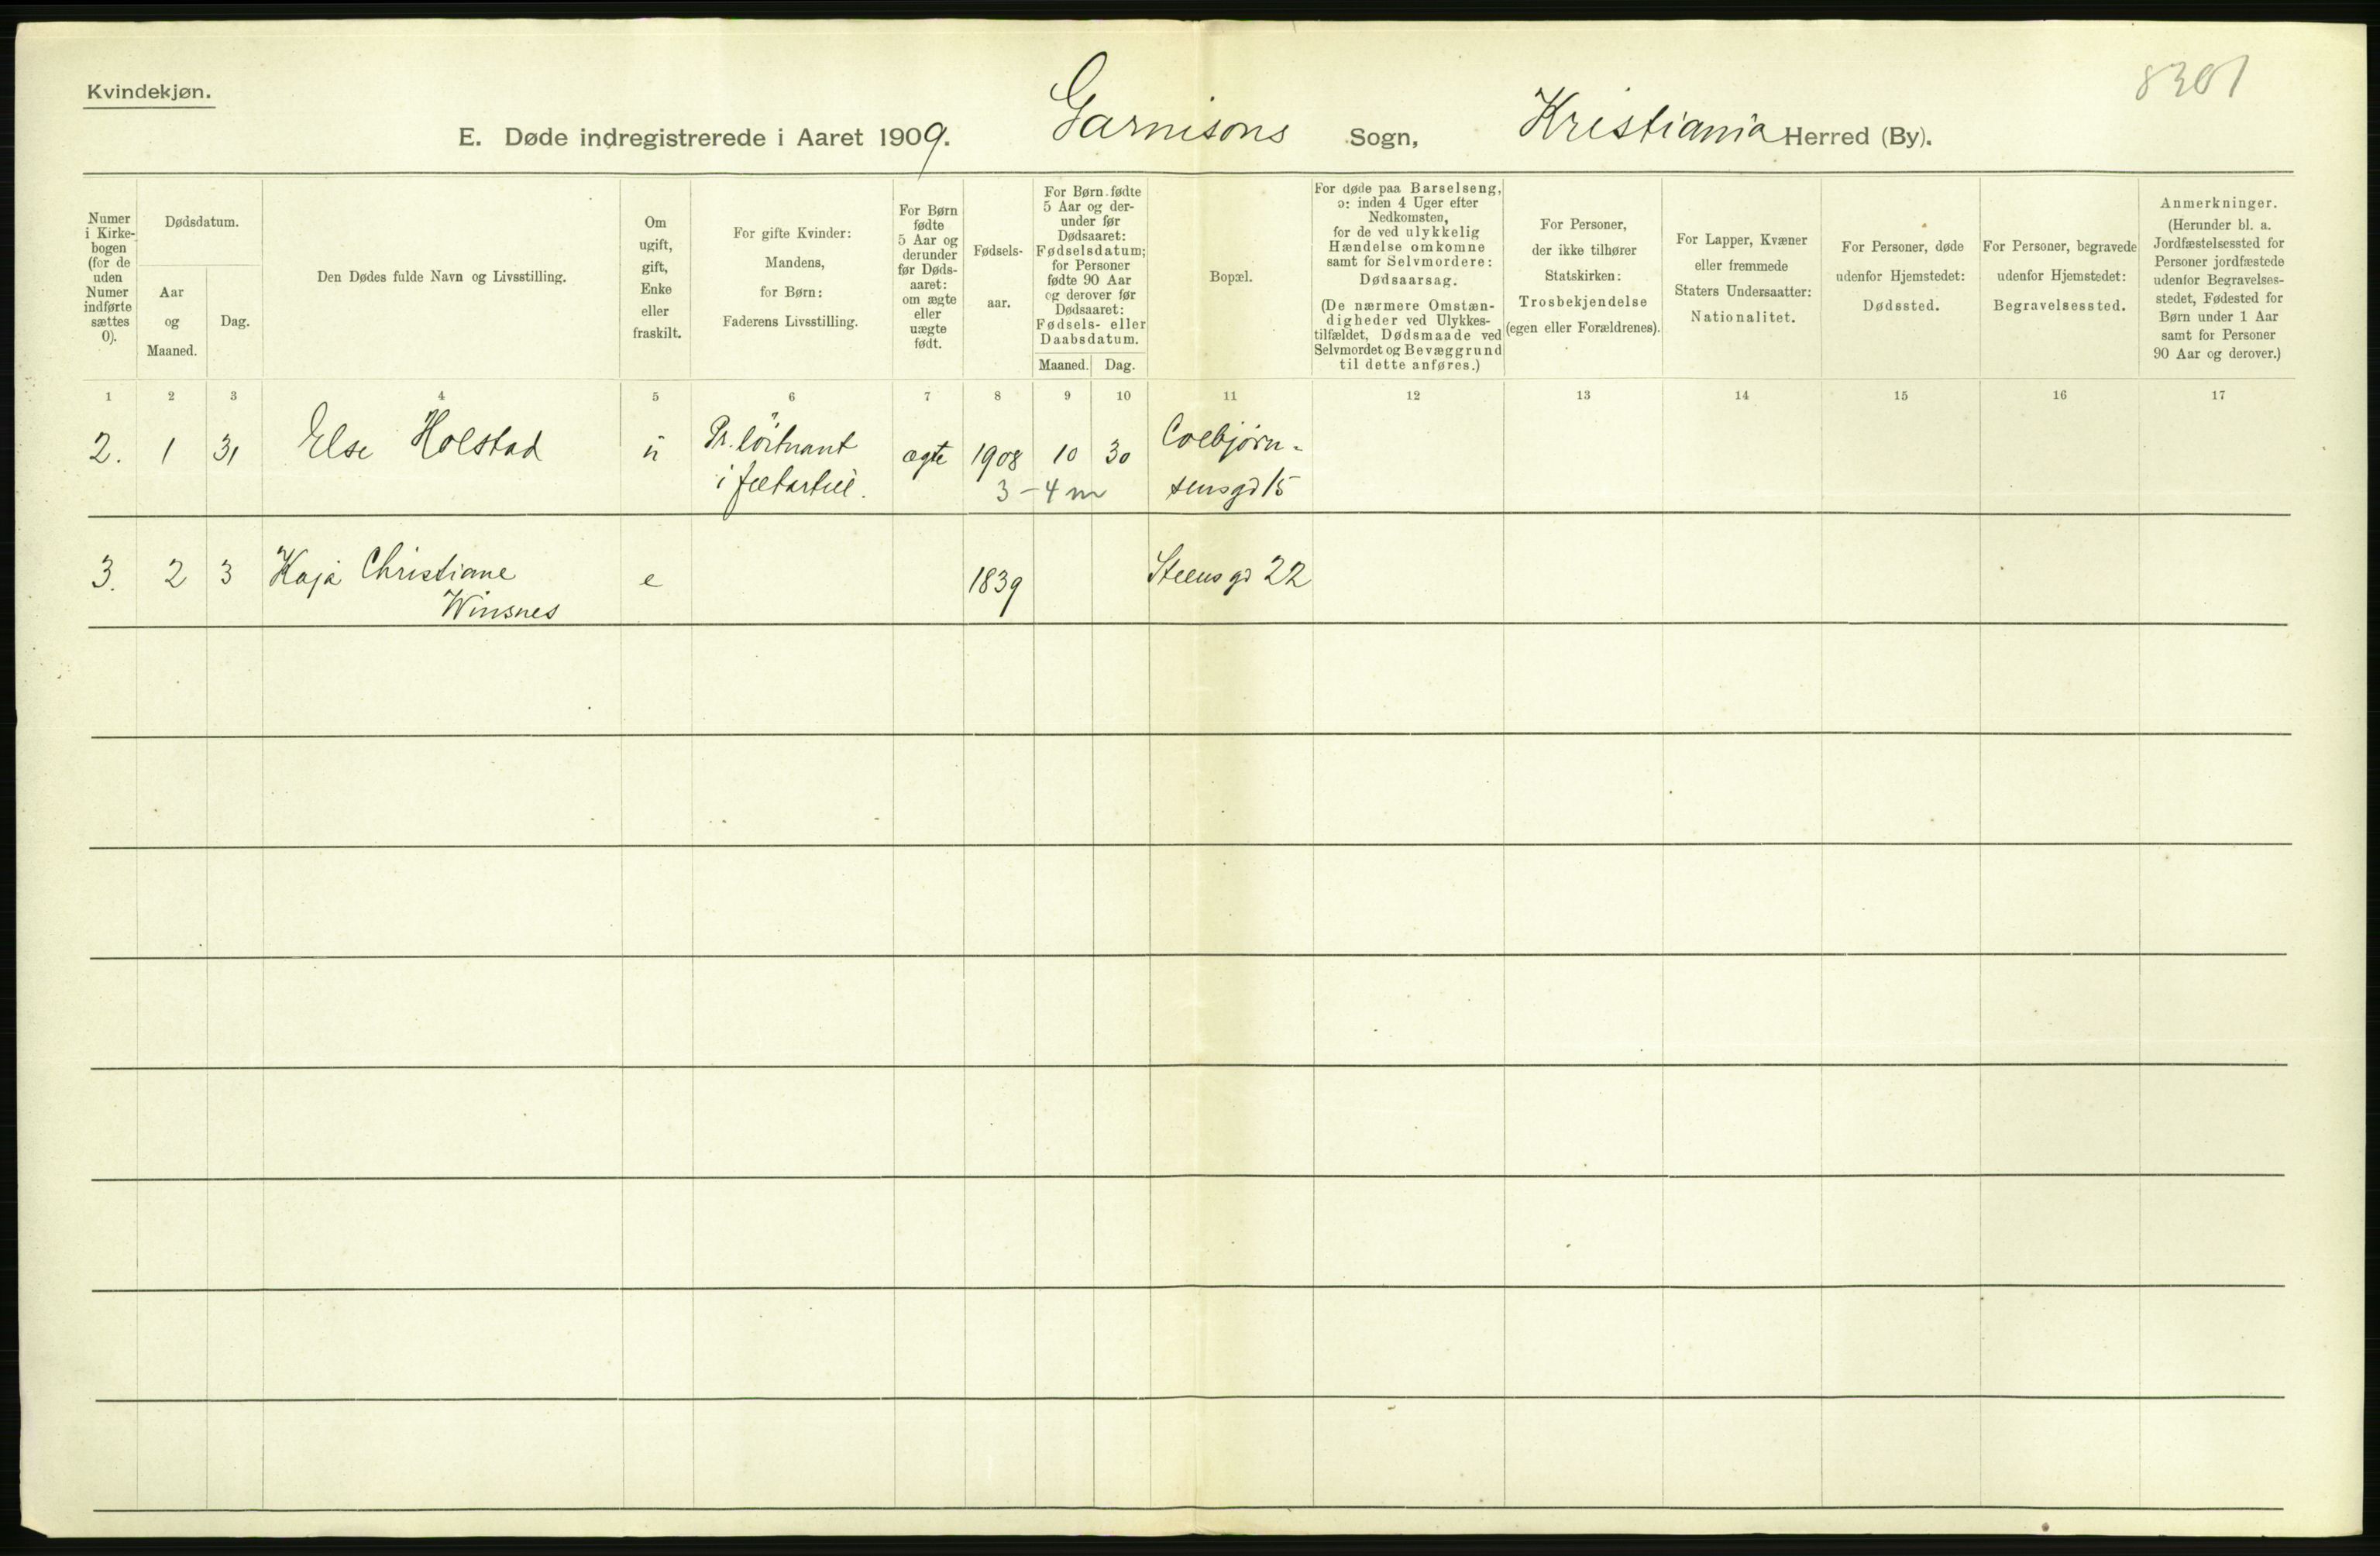 Kvindekjøn.
8301
E. Døde indregistrerede i Aaret 1909. Garnisons Sogn, Kristiania Herred (By).
Numer
i Kirke-
bogen
(for de
uden
Numer
indførte
sættes
0).
Dødsdatum.
Aar
og
Maaned.
Dag.
Den Dødes fulde Navn og Livsstilling.
Om
ugift,
gift,
Enke
eller
fraskilt.
For gifte Kvinder:
Mandens,
for Børn:
Faderens Livsstilling.
For Børn
fødte
5 Aar og
derunder
før Døds-
aaret:
om ægte
eller
uægte
født.
Fødsels-
aar.
For Børn fødte
5 Aar og der-
under før
Dødsaaret:
Fødselsdatum;
for Personer
fødte 90 Aar
og derover før
Dødsaaret:
Fødsels- eller
Daabsdatum.
Maaned. Dag.
Bopæl.
For døde paa Barselseng,
ɔ: inden 4 Uger efter
Nedkomsten,
for de ved ulykkelig
Hændelse omkomne
samt for Selvmordere:
Dødsaarsag.
(De nærmere Omstæn-
digheder ved Ulykkes-
tilfældet, Dødsmaade ved
Selvmordet og Bevæggrund
til dette anføres.)
For Personer,
der ikke tilhører
Statskirken:
Trosbekjendelse
(egen eller Forældrenes).
For Lapper, Kvæner
eller fremmede
Staters Undersaatter:
Nationalitet.
For Personer, døde
udenfor Hjemstedet:
Dødssted.
For Personer, begravede
udenfor Hjemstedet:
Begravelsessted.
Anmerkninger.
(Herunder bl. a.
Jordfæstelsessted for
Personer jordfæstede
udenfor Begravelses-
stedet, Fødested for
Børn under 1 Aar
samt for Personer
90 Aar og derover.)
1 2 3 4 5 6 7 8 9 10 11 12 13 14 15 16 17
2. 1 31 Else Holstad u Pr. löitnant ægte 1908 10 30 Colbjørn-
i feltartill. 3-4 m sensgd 15
3. 2 3 Kaja Christiane e 1839 Steensgd 22
Winsnes